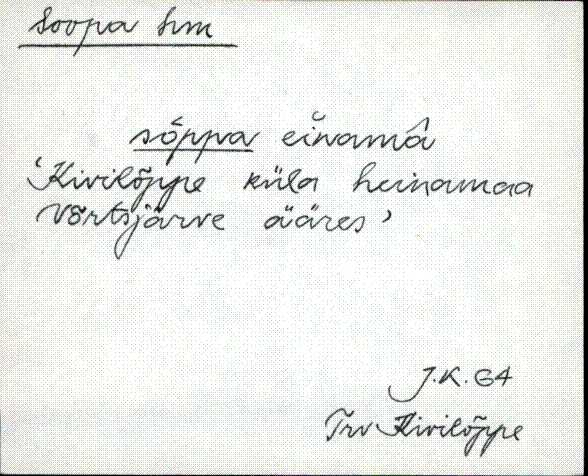 Soopa hm
sóppa eĭnamâ
'Kivilõppe küla heinamaa
Võrtsjärve ääres'
J.K. 64
Trv Kivilõppe